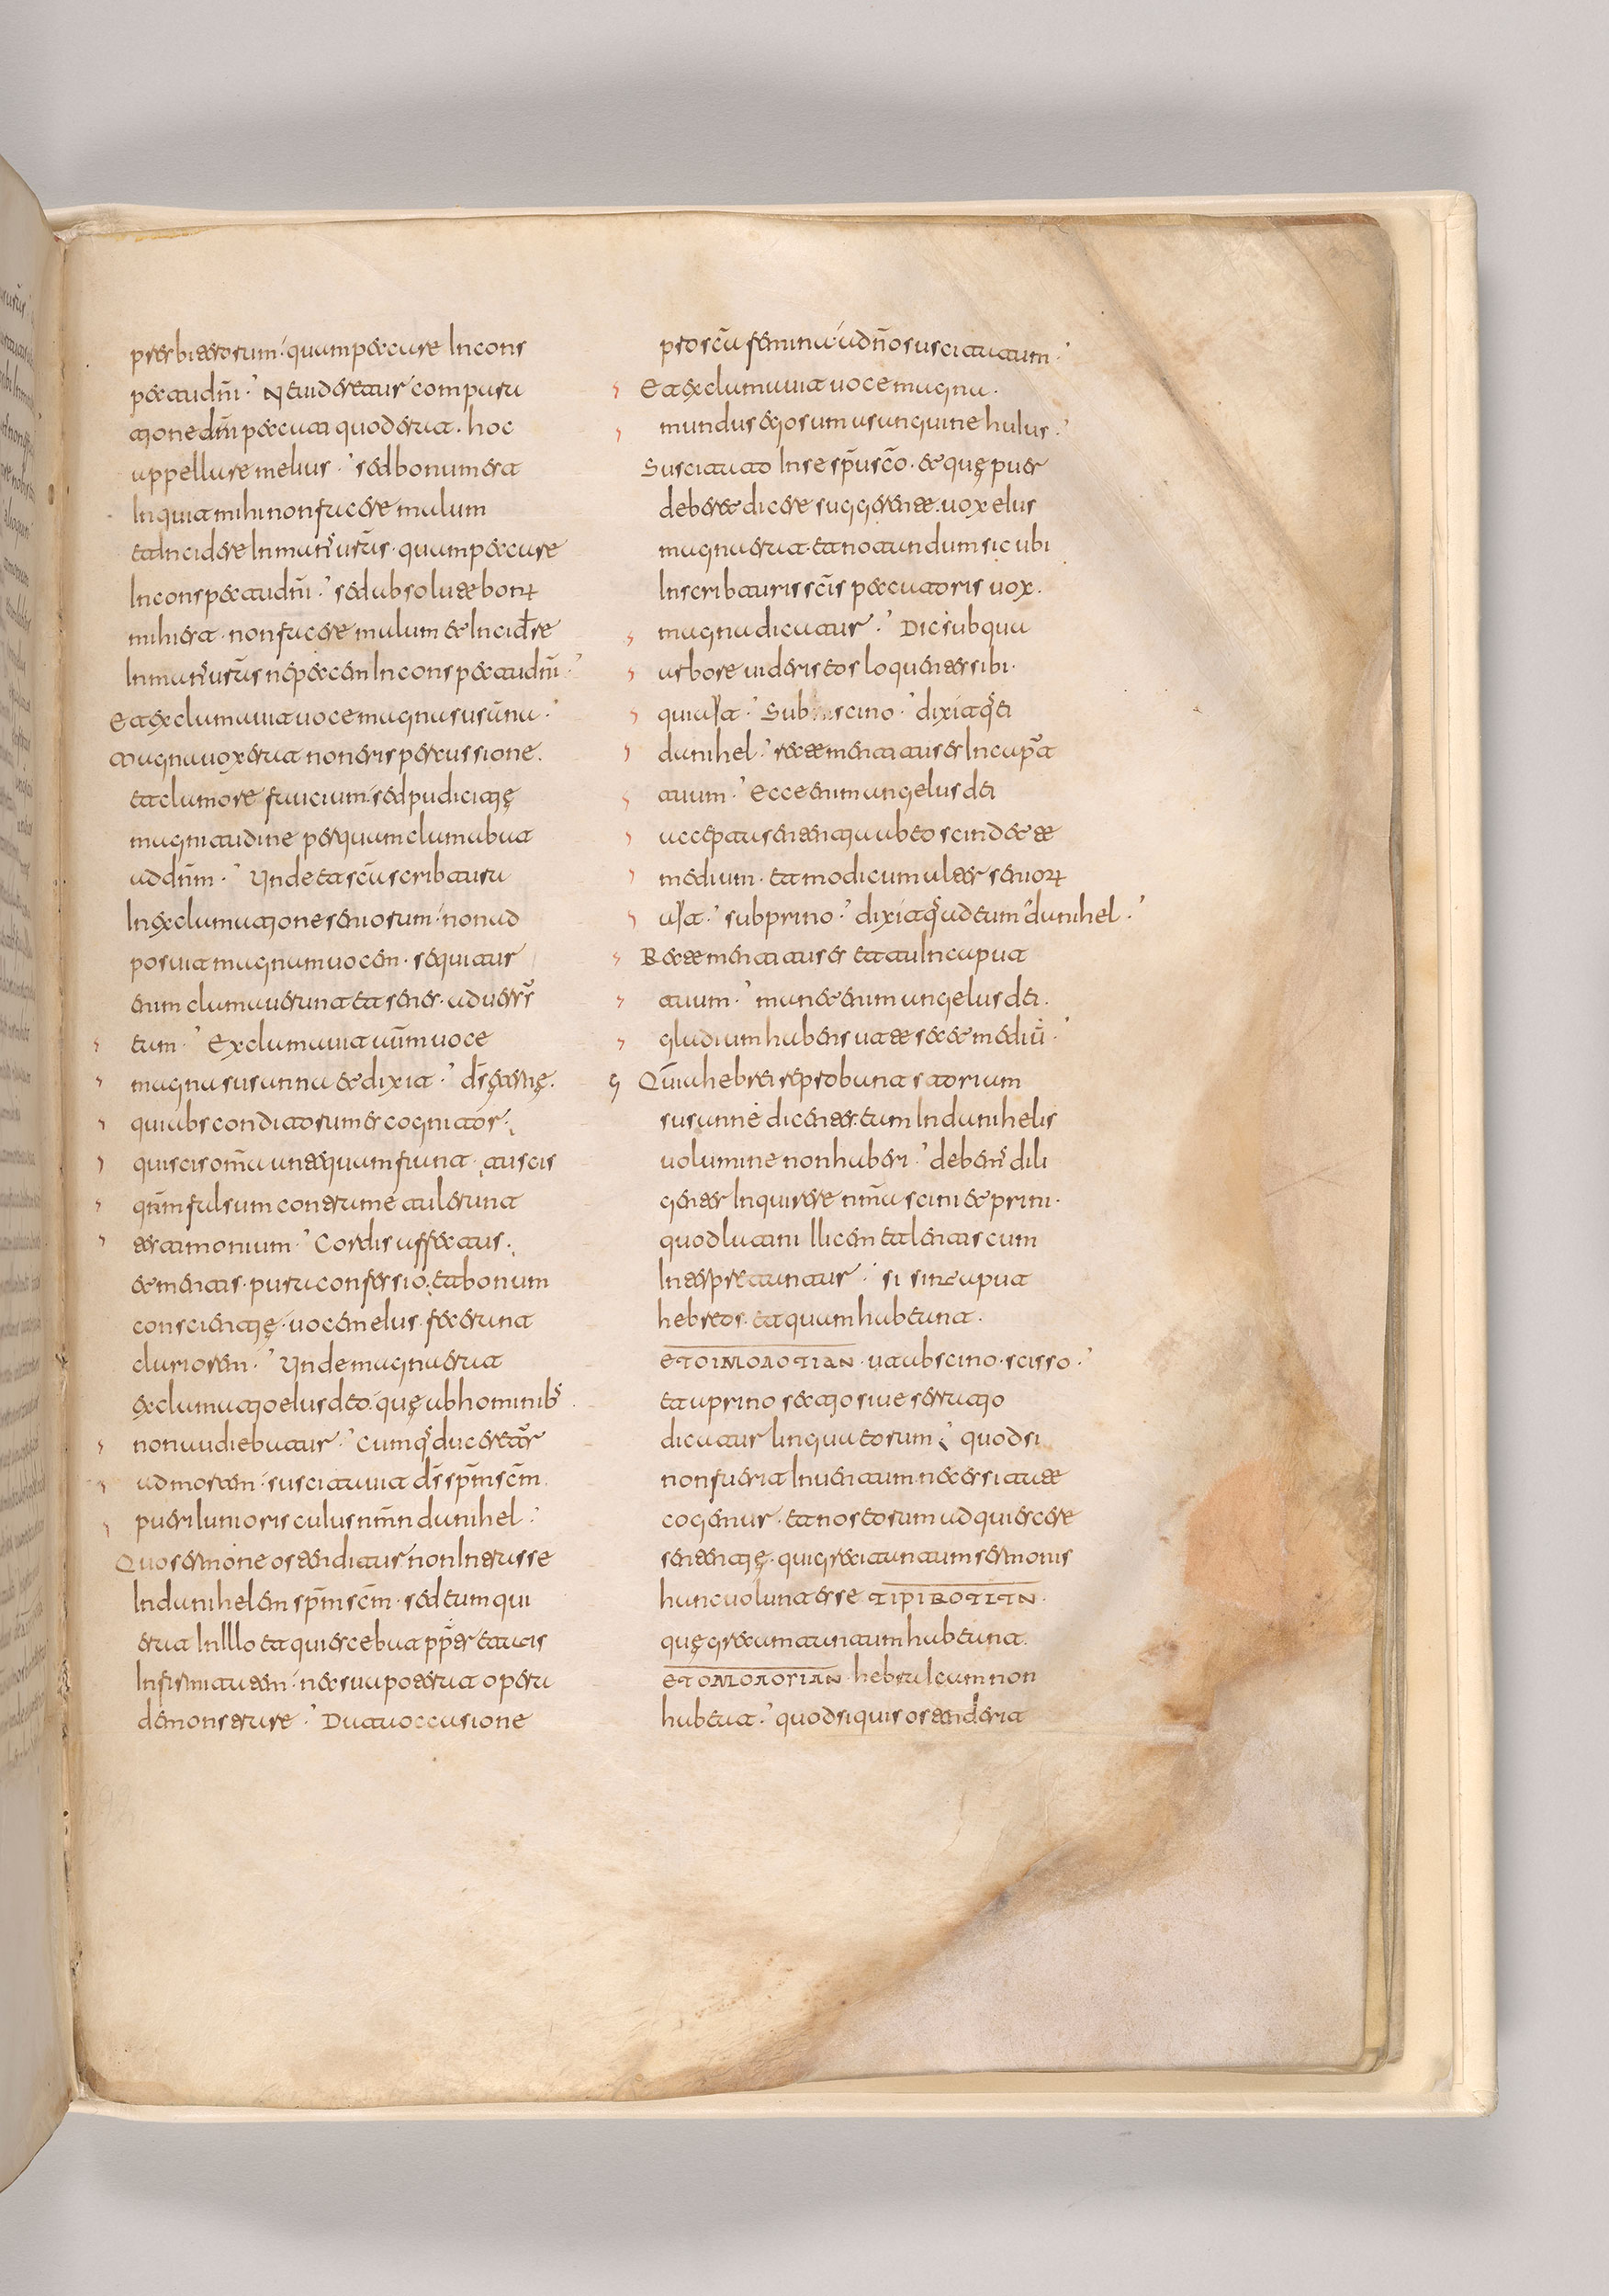 presbiterorum · quam peccare In cons
pectu dñi ·' Ne uideretur compara
tione dñi peccati quod erat · hoc
appellare melius ·' sed bonum est
Inquit mihi non facere malum
et Incidere In man' urãs · quam peccare
In conspectu dñi ·' sed absolute bonũ
mihi est · non facere malum et Incidere
In man' urãs ne peccem In conspectu dñi ·'
Et exclamauit uoce magna susanna ·
Magna uox erat non aeris percussione .
et clamore faucium · sed pudicitię
magnitudine per quam clamabat
ad dñm ·' Unde et scã scribtura
In exclamatione seniorum · non ad
posuit magnam uocem · sequitur
enim clamauerunt et senes · aduers̃
eam ·' Exclamauit aũm uoce
magna susanna et dixit ·' ds̃ ęternę .
qui absconditorum es cognitor ·
qui scis omĩa antequam fiant · tu scis
qñm falsum contra me tulerunt
testimonium ·' Cordis affectus ·
et mentis · pura confessio · et bonum
conscientię · uocem eius · fecerant
clariorem ·' Unde magna erat
exclamatio eius deo · quę ab hominib'
non audiebatur ·' Cumq' duceretur
ad mortem · suscitauit ds̃ spm̃ scm̃
pueri Iunioris cuius nm̃n danihel ·'
Quo sermone ostenditur non Intrasse
In danihelem spm̃ scm̃ · sed eum qui
erat In Illo et quiescebat pp̃ter etatis
Infirmitatem · nec sua poterat opera
demonstrare ·' Data occasione
pro scã femina · ad ñ o suscitatum ·'
Et exclamauit uoce magna ·
mundus ego sum a sanguine huius ·'
Suscitato In se spũ scõ · et quę puer
deberet dicere suggerente . uox eius
magna erat · et notandum sicubi
Inscribturis scĩs peccatoris uox ·
magna dicatur ·' Dic sub qua
arbore uideris eos loquentes sibi ·
qui ait ·' Sub scino ·' dixit q' ei
danihel ·' recte mentitus es In caput
tuum ·' Ecce enim angelus dei
accepta sententia ab eo scindet te
medium · et modicum alter senior
ait ·' sub prino ·' dixit q' ad eum · danihel ·'
Recte mentitus es et tu In caput
tuum ·' manet enim angelus dei ·
gladium habens ut te secet mediũ ·'
Quia hebrei reprobant storiam
susanne dicentes . eam In danihelis
uolumine non haberi ·' debem' dili
genter Inquirere nm̃a scini et prini ·
quod latini Ilicem et lentiscum
Interpretantur ·' si sint aput
hebreos · et quam habeant ·
ETOIMOLOTIAN · ut ab scino · scisso ·'
et a prino sectio siue serratio
dicatur lingua eorum ·' quod si
non fuerit Inuentum necessitate
cogemur · et nos eorum adquiescere
sententię · qui grecitantum sermonis
hanc uolunt esse TIPIROTITN ·
quę grecum tantum habeant ·
ETOMOLOTIAN · hebraicum non
habeat ·' quod si quis ostenderit